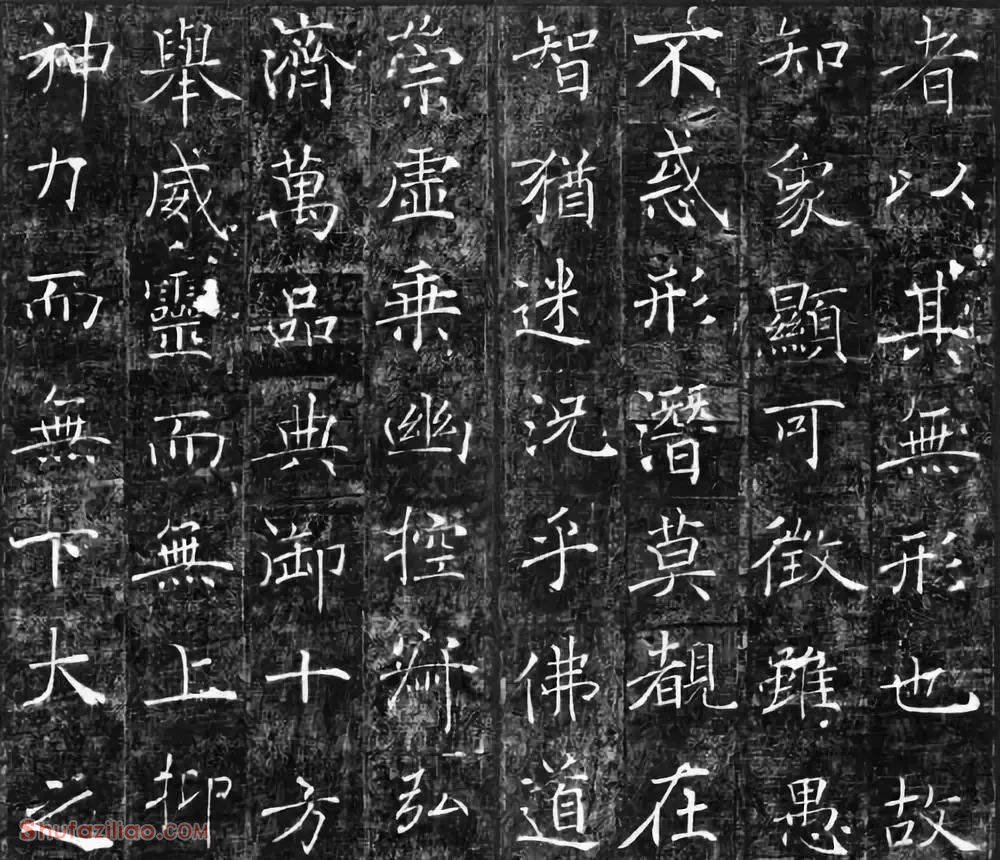 者以其無形也故
知象顯可徵雖愚
不惑形潛莫覩在
智猶迷況乎佛道
崇虛乗幽控寂弘
濟萬品典御十方
舉威靈而無上抑
神力而無下大之
Shufaziliao.COM